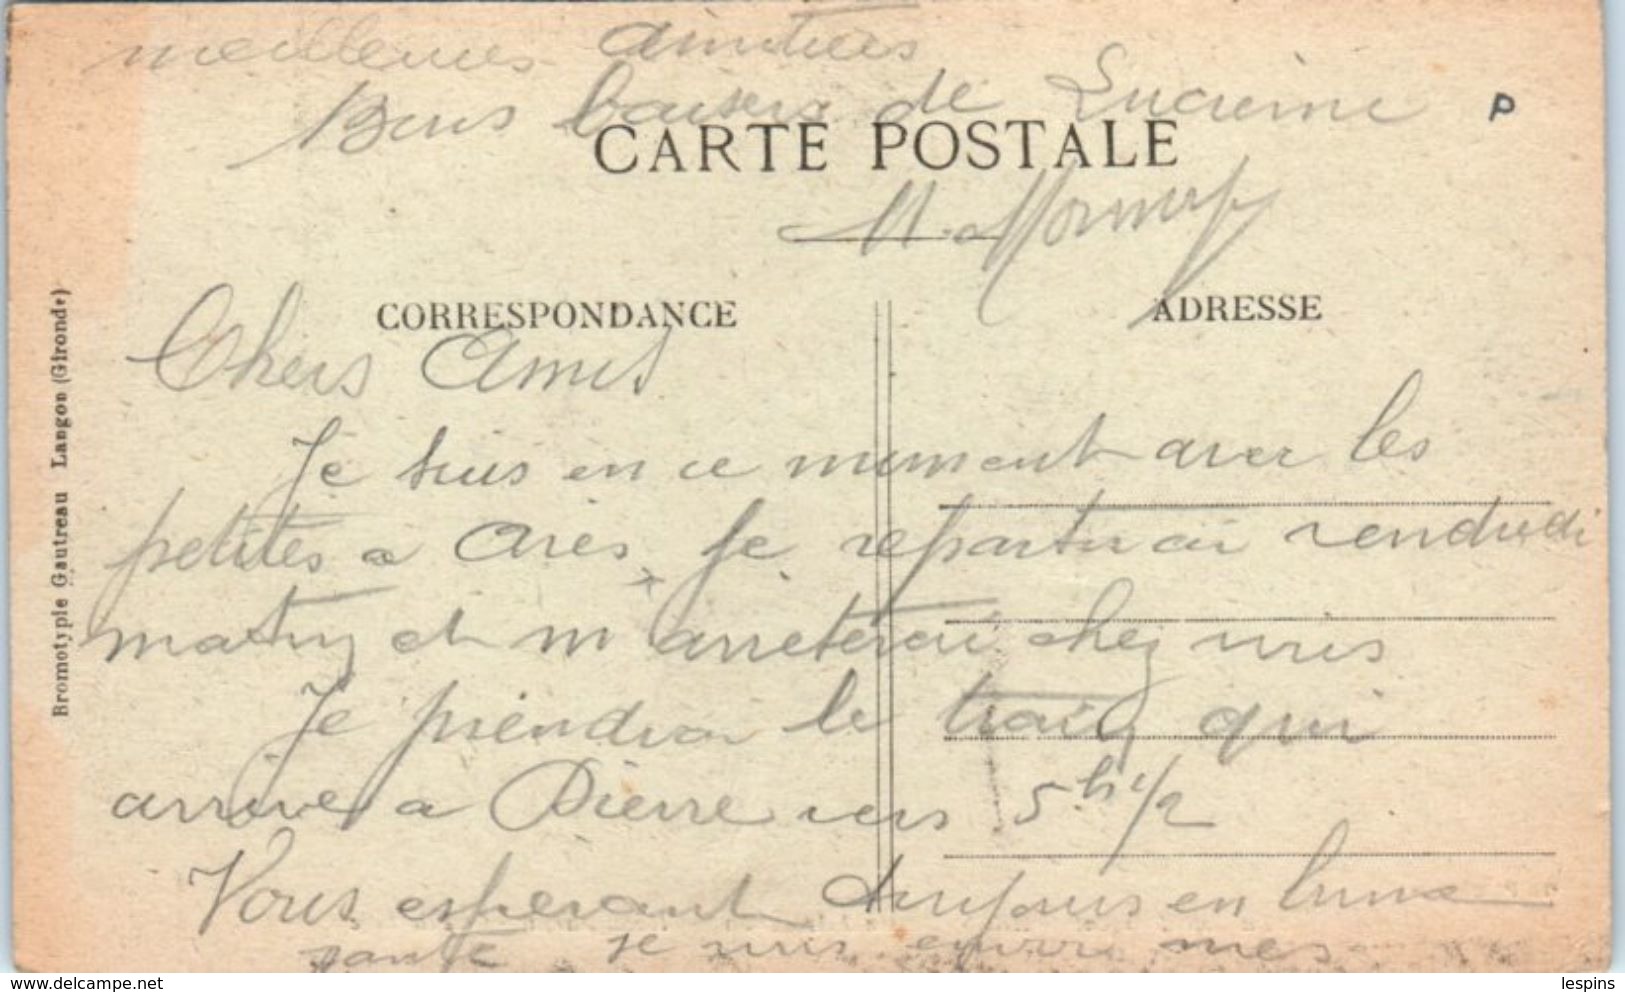 meilleures amitiés
Bons baisers de Lucienne
P
CARTE POSTALE
CORRESPONDANCE
ADRESSE
Bromotypie Gautreau Langon (Gironde)
Chers Amis
Je suis en ce moment avec les
petites a Arès, je repartirai vendredi
matin et m'arreterai chez vous
Je prendrai le train qui
arrive a Pierre vers 5h 1/2
Vous esperant toujours en bonne
santé je vous envoie mes
delcampe.net
lespins